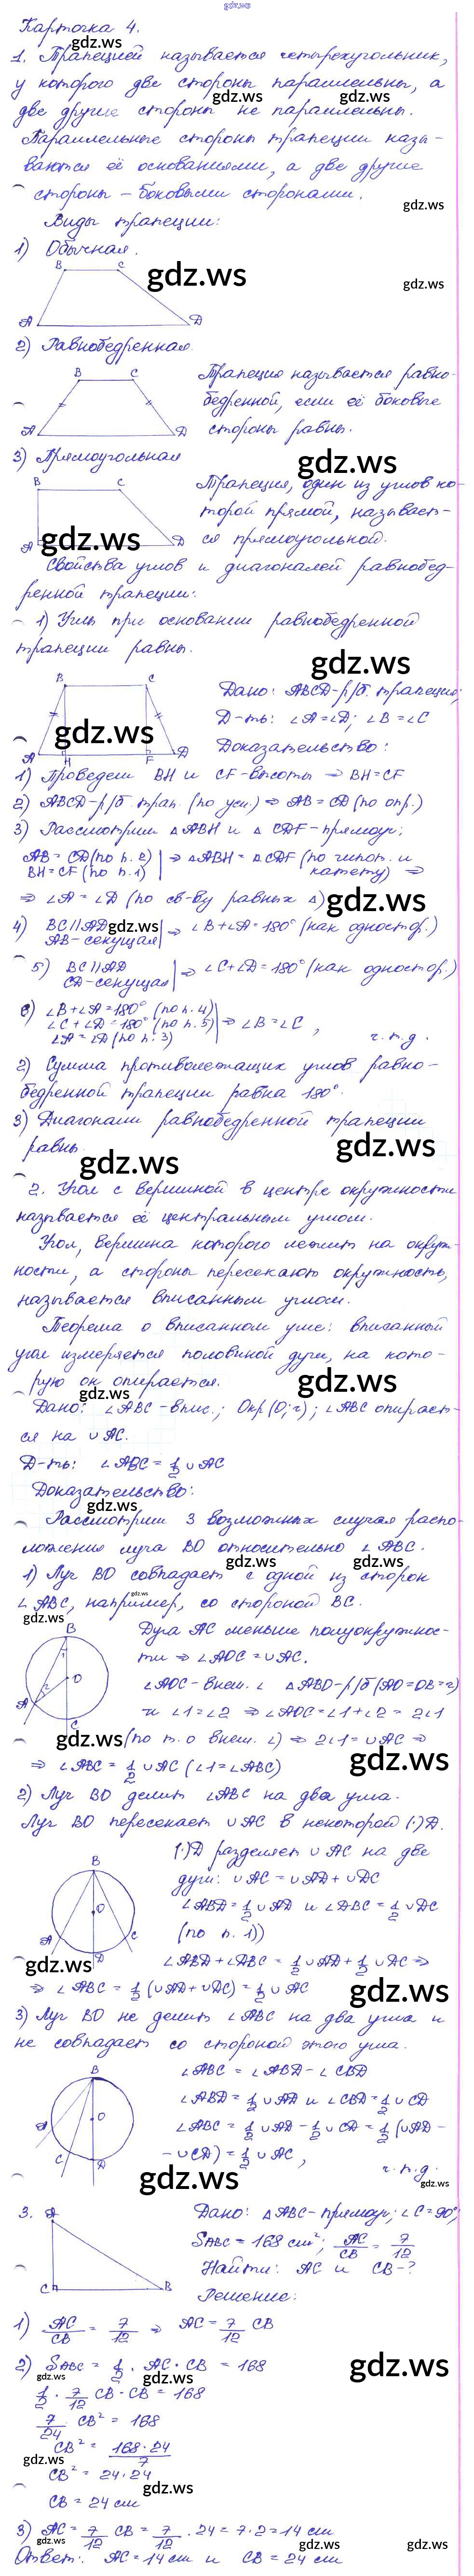 gdz.ws
Карточка 4.
gdz.ws
1. Трапецией называется четырехугольник,
у которого две стороны параллельны, а
gdz.ws gdz.ws
две другие стороны не параллельны.
Параллельные стороны трапеции назы-
ваются её основаниями, а две другие
стороны - боковыми сторонами.
gdz.ws
Виды трапеции:
1) Обычная.
B C
gdz.ws gdz.ws
A D
2) Равнобедренная
B C
A D
Трапеция называется равно-
бедренной, если её боковые
стороны равны.
3) Прямоугольная
gdz.ws
B C
gdz.ws
A D
Трапеция, один из углов ко-
торой прямой, называет-
ся прямоугольной.
Свойства углов и диагоналей равнобед-
ренной трапеции:
1) Углы при основании равнобедренной
трапеции равны.
gdz.ws
B C
gdz.ws
A H F D
Дано: ABCD - р/б. трапеция;
Д-ть: ∠A = ∠D; ∠B = ∠C
Доказательство:
1) Проведем BH и CF - высоты ⇒ BH = CF
2) ABCD - р/б. трап. (по усл.) ⇒ AB = CD (по опр.)
3) Рассмотрим △ABH и △CDF - прямоуг;
AB = CD (по п. 2) | ⇒ △ABH = △CDF (по гипот. и
BH = CF (по п. 1) | катету) ⇒
⇒ ∠A = ∠D (по св-ву равных △)
gdz.ws
4) BC || AD | ⇒ ∠B + ∠A = 180° (как одностор.)
gdz.ws
AB - секущая |
5) BC || AD | ⇒ ∠C + ∠D = 180° (как одностор.)
CD - секущая |
6) ∠B + ∠A = 180° (по п. 4)
∠C + ∠D = 180° (по п. 5) | ⇒ ∠B = ∠C,
∠A = ∠D (по п. 3) ч.т.д.
2) Сумма противолежащих углов равно-
бедренной трапеции равна 180°.
3) Диагонали равнобедренной трапеции
равны
gdz.ws
gdz.ws
2. Угол с вершиной в центре окружности
называется её центральным углом.
Угол, вершина которого лежит на окруж-
ности, а стороны пересекают окружность,
называется вписанным углом.
Теорема о вписанном угле: вписанный
угол измеряется половиной дуги, на кото-
рую он опирается.
gdz.ws
gdz.ws
Дано: ∠ABC - впис.; Окр (O; r); ∠ABC опирает-
ся на ∪AC.
Д-ть: ∠ABC = 1/2 ∪AC
Доказательство:
gdz.ws
Рассмотрим 3 возможных случая распо-
ложение луча BO относительно ∠ABC.
gdz.ws gdz.ws
1) Луч BO совпадает с одной из сторон
gdz.ws
∠ABC, например, со стороной BC.
gdz.ws
B
1
O
A 2
C
Дуга AC меньше полуокружнос-
ти ⇒ ∠AOC = ∪AC.
∠AOC - внеш. ∠ △ABO - р/б (AO = OB = r)
и ∠1 = ∠2 ⇒ ∠AOC = ∠1 + ∠2 = 2∠1
gdz.ws
(по т. о внеш. ∠) ⇒ 2∠1 = ∪AC ⇒
gdz.ws
⇒ ∠ABC = 1/2 ∪AC (∠1 = ∠ABC)
2) Луч BO делит ∠ABC на два угла.
Луч BO пересекает ∪AC в некоторой (·) D.
B
O
A C
D
gdz.ws
(·) D разделяет ∪AC на две
дуги: ∪AC = ∪AD + ∪DC
∠ABD = 1/2 ∪AD и ∠DBC = 1/2 ∪DC
(по п. 1))
∠ABD + ∠DBC = 1/2 ∪AD + 1/2 ∪DC ⇒
⇒ ∠ABC = 1/2 (∪AD + ∪DC) = 1/2 ∪AC
gdz.ws
3) Луч BO не делит ∠ABC на два угла и
не совпадает со стороной этого угла.
B
O
A
C D
∠ABC = ∠ABD - ∠CBD
∠ABD = 1/2 ∪AD и ∠CBD = 1/2 ∪CD
∠ABC = 1/2 ∪AD - 1/2 ∪CD = 1/2 (∪AD -
- ∪CD) = 1/2 ∪AC,
ч.т.д.
gdz.ws
gdz.ws
3. A
C B
Дано: △ABC - прямоуг; ∠C = 90°;
SABC = 168 см²; AC/CB = 7/12
Найти: AC и CB - ?
Решение:
1) AC/CB = 7/12 ⇒ AC = 7/12 CB
2) SABC = 1/2 · AC · CB = 168
gdz.ws gdz.ws gdz.ws
1/2 · 7/12 CB · CB = 168
7/24 CB² = 168
CB² = 168·24/7
gdz.ws
CB² = 24·24
gdz.ws
CB = 24 см
3) AC = 7/12 CB = 7/12 · 24 = 7·2 = 14 см
gdz.ws gdz.ws gdz.ws
Ответ: AC = 14 см и CB = 24 см